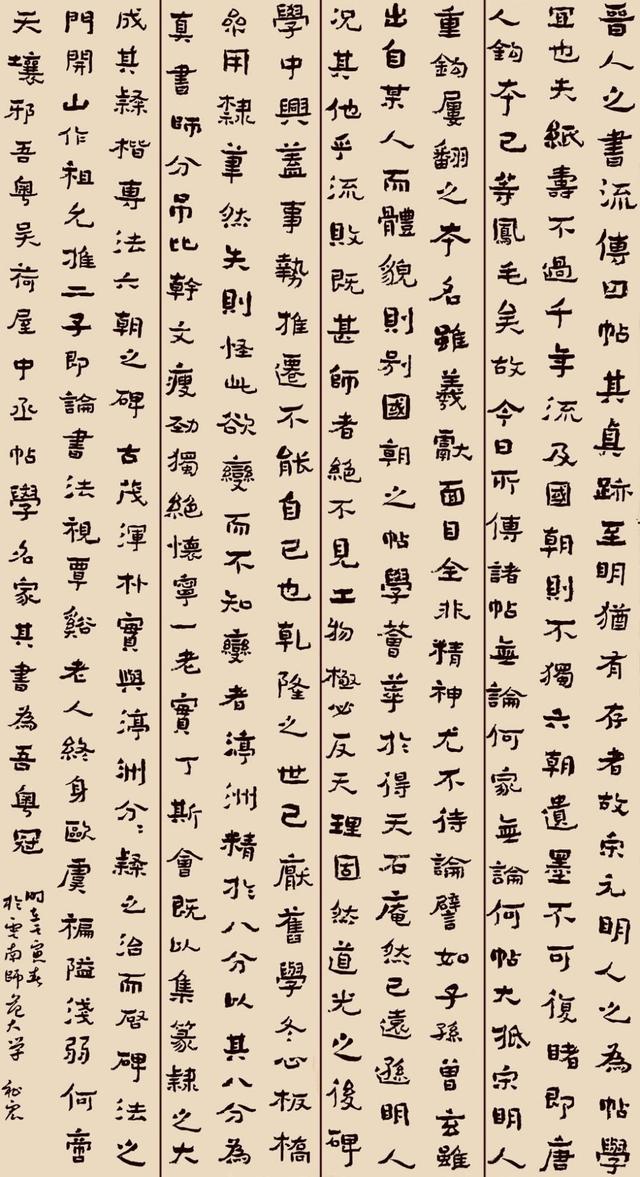 晉人之書流傳曰帖其真跡至明猶有存者故宋元明人之為帖學
宜也夫紙壽不過千年流及國朝則不獨六朝遺墨不可復睹即唐
人鈎本已等鳳毛矣故今日所傳諸帖無論何家無論何帖大抵宋明人
重鈎屢翻之本名雖羲獻面目全非精神尤不待論譬如子孫曾玄雖
出自某人而體貌則別國朝之帖學薈萃於得天石庵然已遠遜明人
況其他乎流敗既甚師者絕不見工物極必反天理固然道光之後碑
學中興蓋事勢推遷不能自已也乾隆之世已厭舊學冬心板橋
參用隸筆然失則怪此欲變而不知變者渟洲精於八分以其八分為
真書師分吊比幹文瘦勁獨絕懷寧一老實丁斯會既以集篆隸之大
成其隸楷專法六朝之碑古茂渾朴實與渟洲分〻隸之治而啟碑法之
門開山作祖允推二子即論書法視覃谿老人終身歐虞褊隘淺弱何啻
天壤邪吾粵吳荷屋中丞帖學名家其書為吾粵冠
時壬寅春
於雲南師范大學